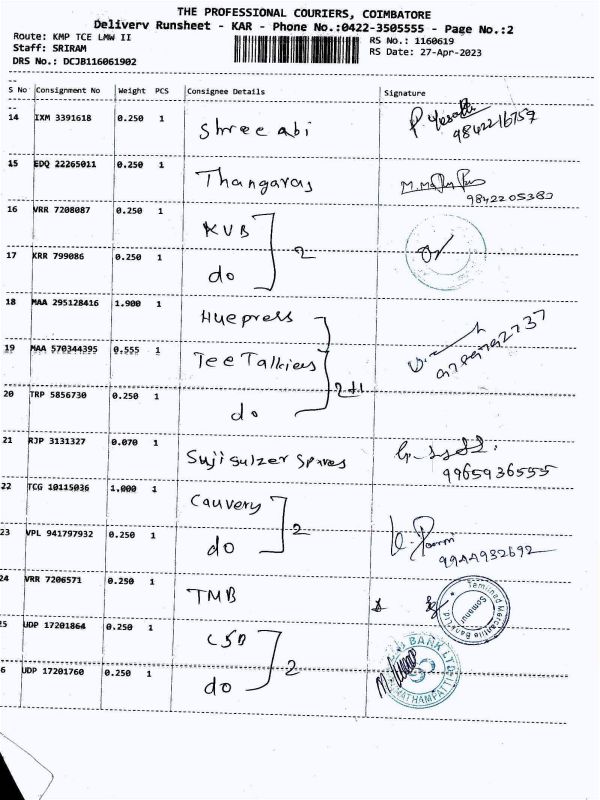 THE PROFESSIONAL COURIERS, COIMBATORE
Delivery Runsheet - KAR - Phone No.:0422-3505555 - Page No.:2
Route: KMP TCE LMW II
RS No.: 1160619
Staff: SRIRAM
RS Date: 27-Apr-2023
DRS No.: DCJB116061902
S No Consignment No Weight PCS Consignee Details Signature
14 IXM 3391618 0.250 1 Shree abi
9842216757
15 EDQ 22265011 0.250 1 Thangaras
9842205383
16 VRR 7208087 0.250 1 KVB
2
17 KRR 799086 0.250 1 do
18 MAA 295128416 1.900 1 Huepress
19 MAA 570344395 0.555 1 Tee Talkies
2+1
20 TRP 5856730 0.250 1 do
21 RJP 3131327 0.070 1 Suji sulzer Spares
9965936555
22 TCG 10115036 1.000 1 Cauvery
2
23 VPL 941797932 0.250 1 do
9944932692
24 VRR 7206571 0.250 1 TMB
Tamilnad Mercantile Bank Ltd
Somanur
25 UDP 17201864 0.250 1 CSB
2
BANK LTD
6 UDP 17201760 0.250 1 do